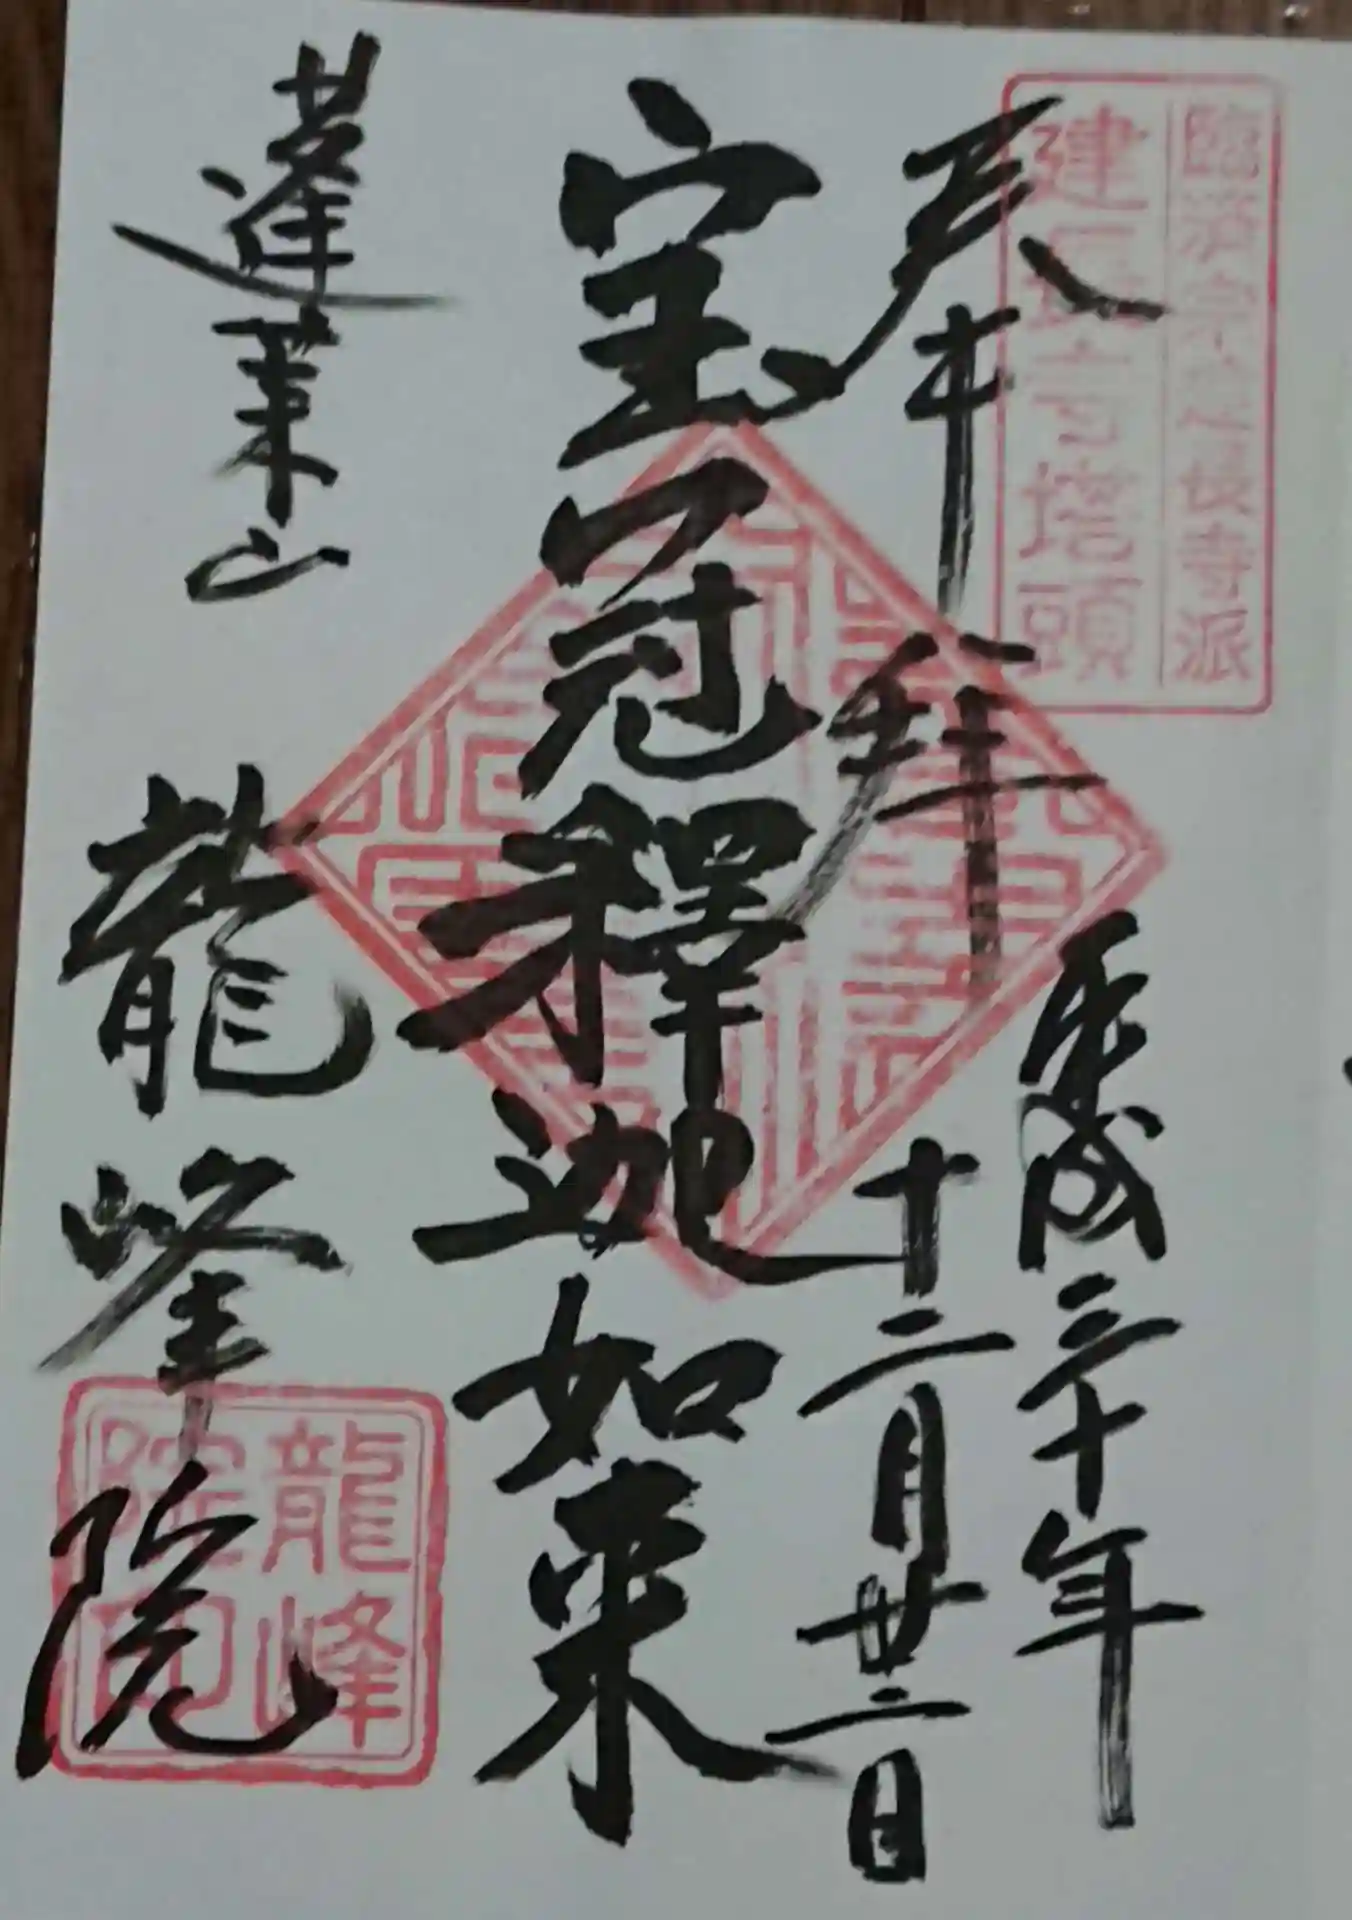 臨済宗建長寺派
建長寺塔頭
奉拝
平成三十年
十二月廿二日
宝冠釋迦如来
蓬莱山
龍峯院
龍峰
院印